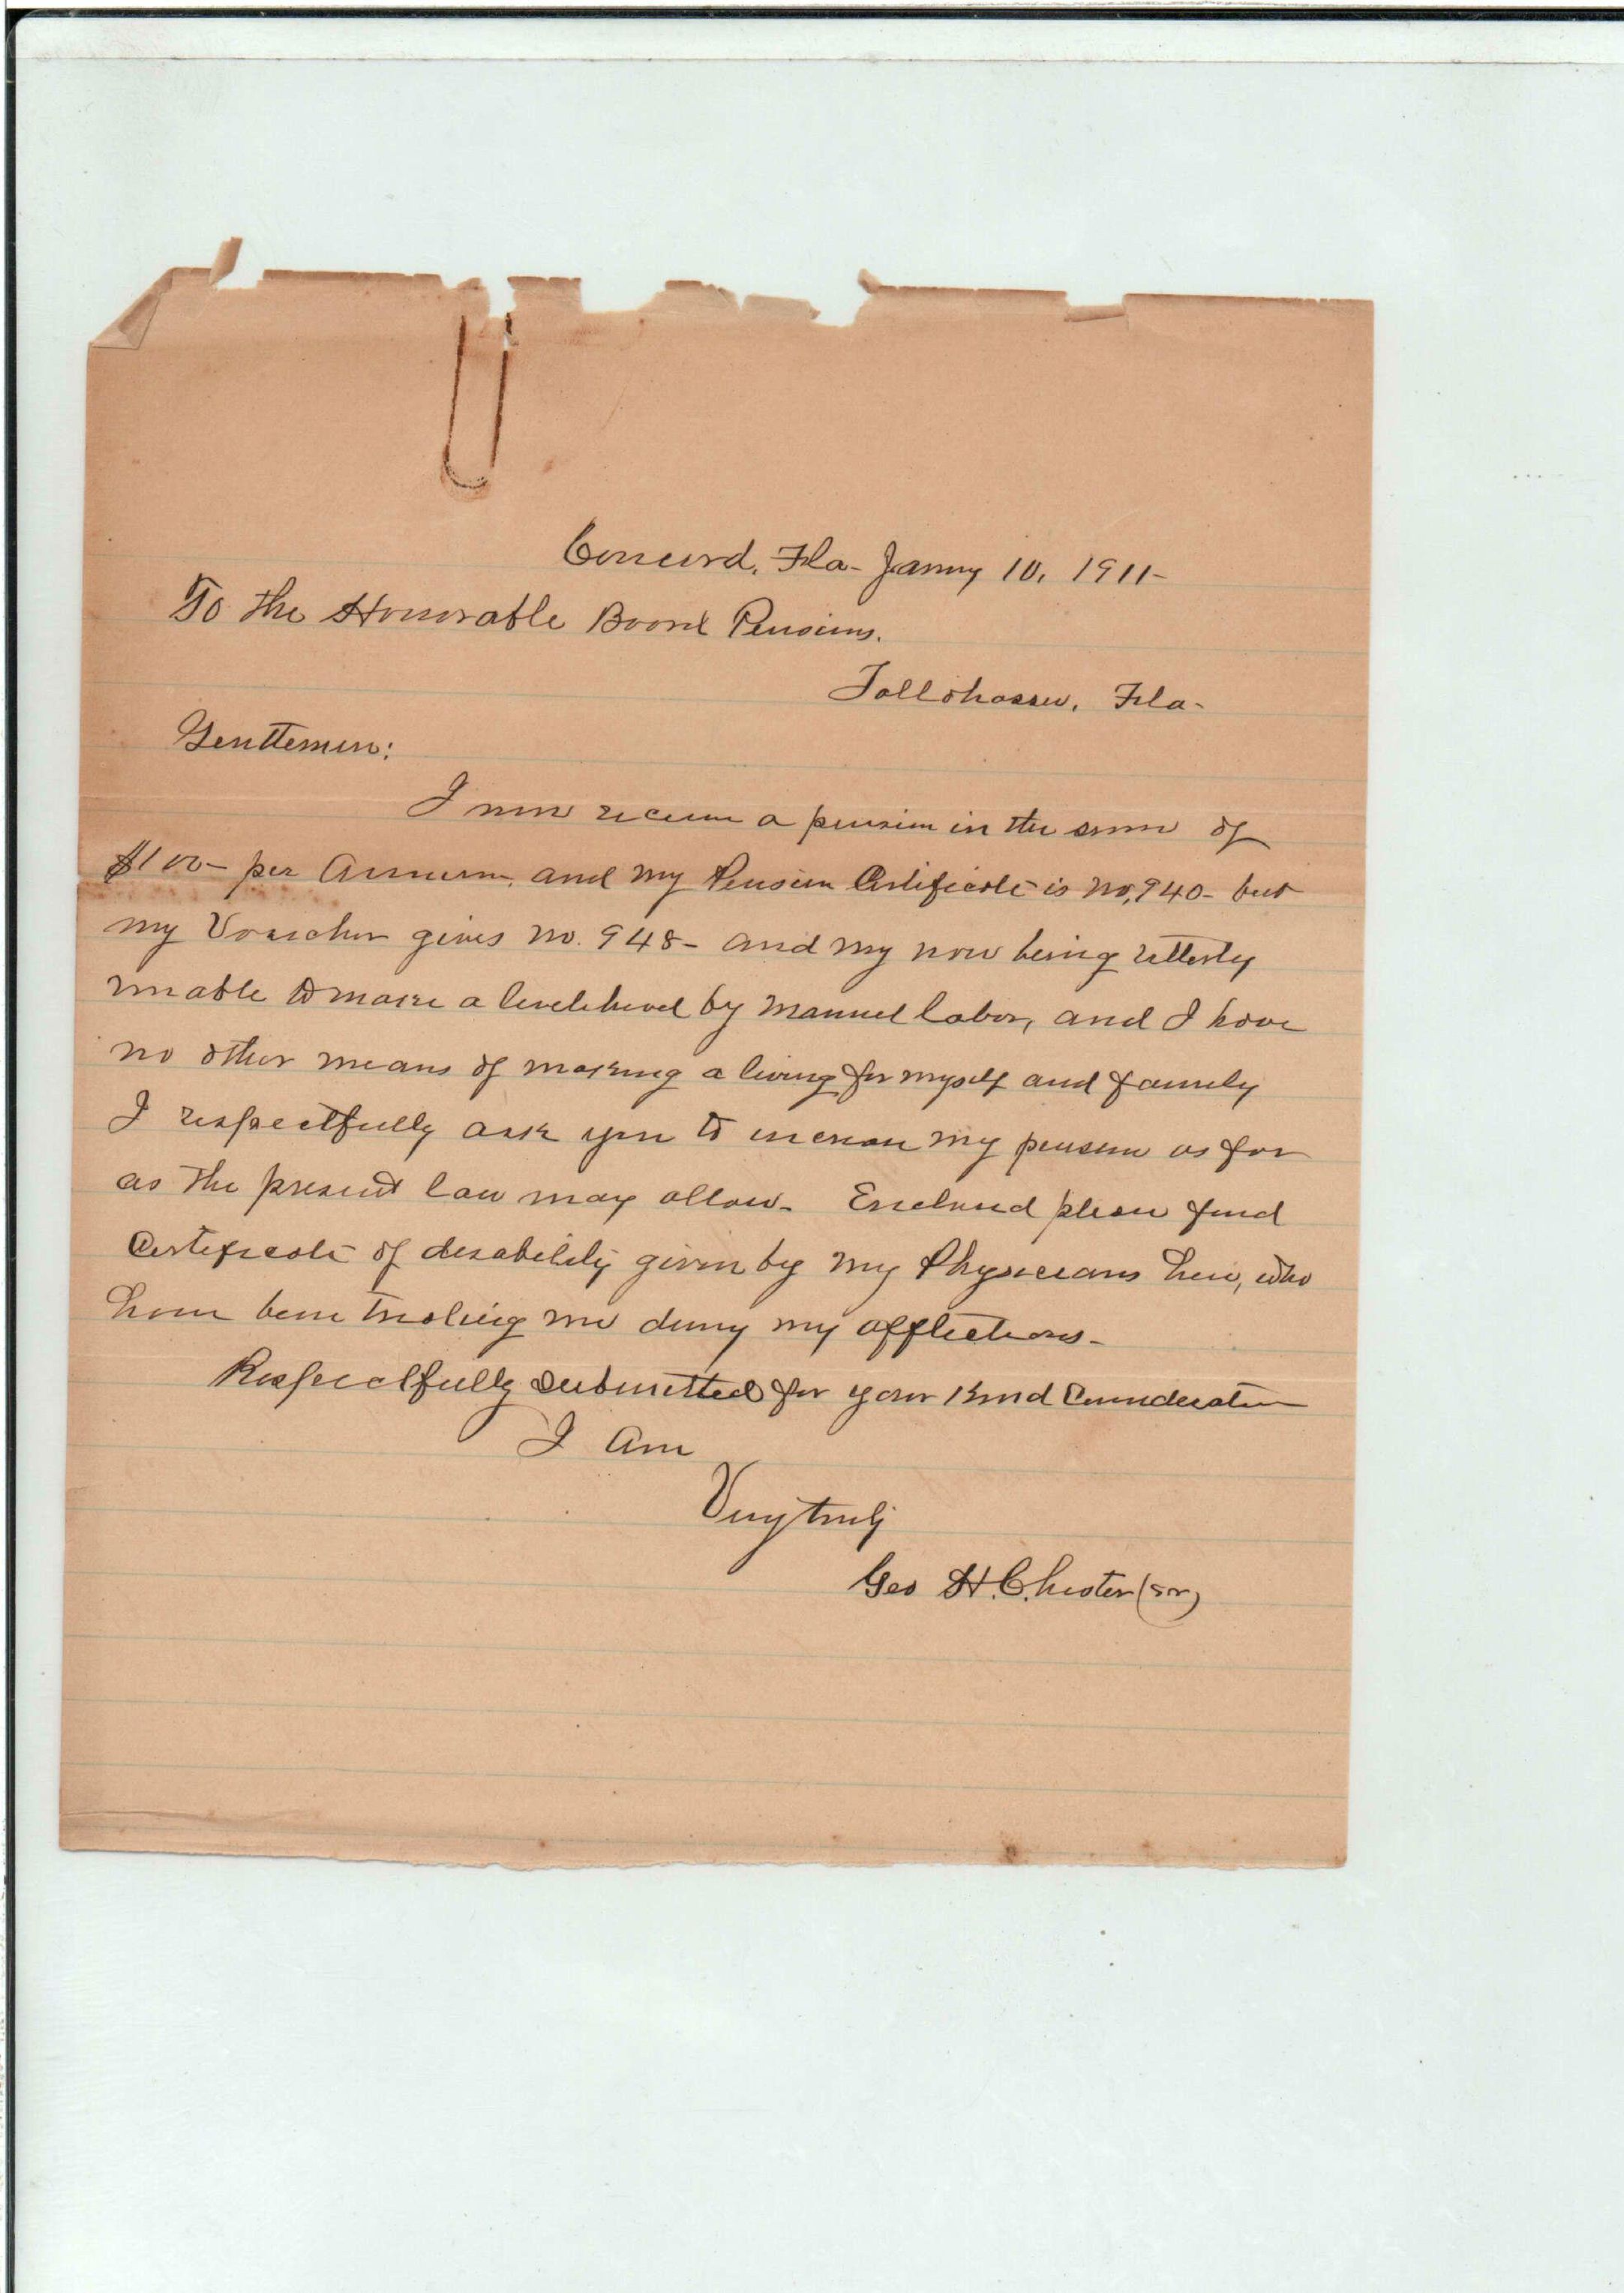 Concord, Fla - Jany 10, 1911 -
To the Honorable Board Pensions.
Tallahassee, Fla -
Gentlemen:
I now receive a pension in the sum of
$100 - per annum, and my Pension Certificate is no, 940 - but
my Voucher gives no. 948 - and my now being utterly
unable to make a livelihood by manuel labor, and I have
no other means of making a living for myself and family
I respectfully ask you to increase my pension as far
as the present law may allow - Enclosed please find
Certificate of disability given by my Physicians here, who
have been treating me during my afflictions -
Respectfully submitted for your kind Consideration
I Am
Very truly
Geo H. Chester (Sr)